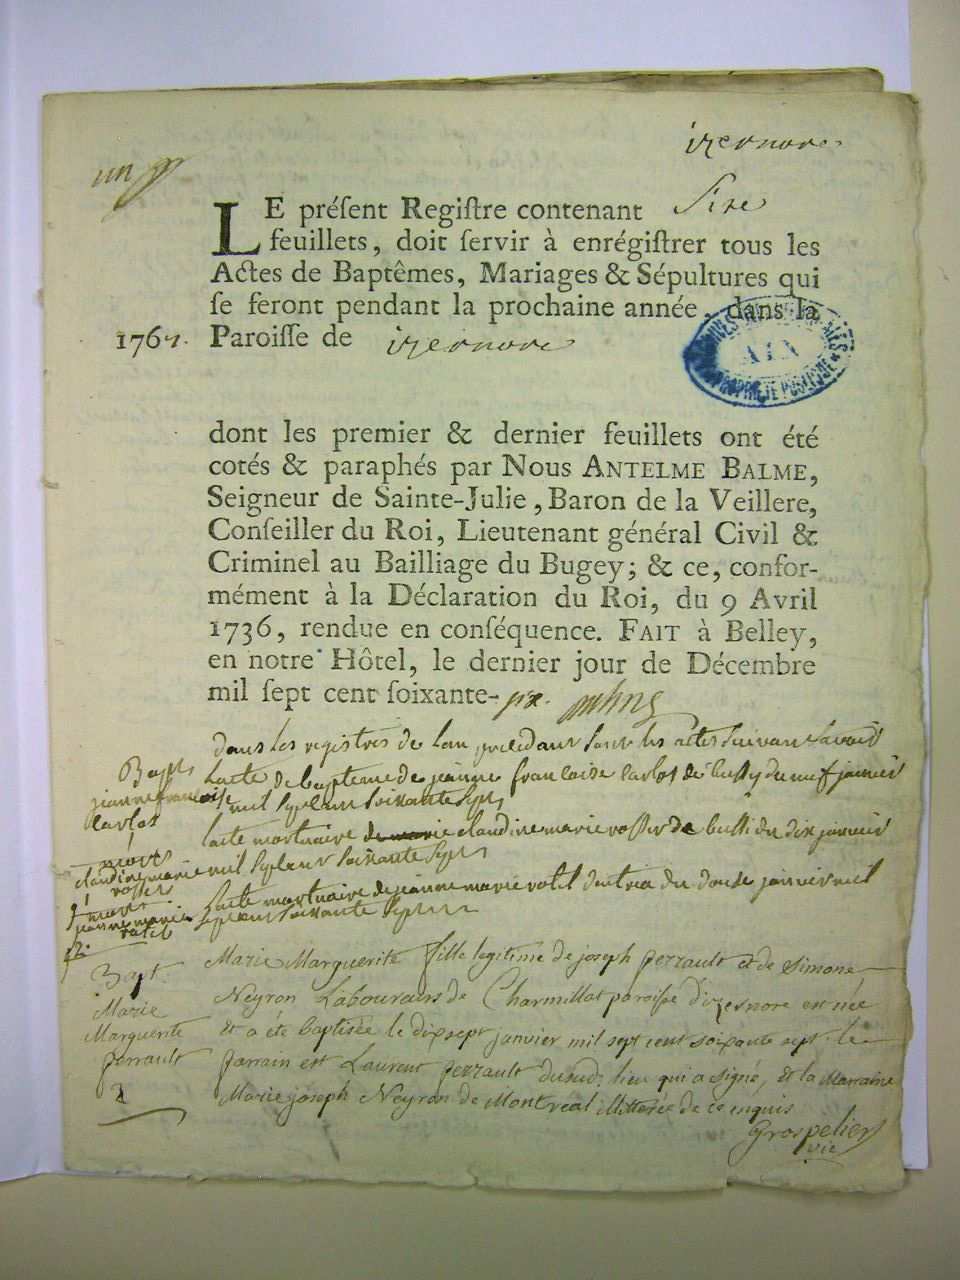 izernore
un
LE préſent Regiſtre contenant Sixe
feuillets, doit ſervir à enrégiſtrer tous les
Actes de Baptêmes, Mariages & Sépultures qui
ſe feront pendant la prochaine année, dans la
1767. Paroiſſe de izernore
AIN
PROPRIÉTÉ PUBLIQUE
dont les premier & dernier feuillets ont été
cotés & paraphés par Nous ANTELME BALME,
Seigneur de Sainte-Julie, Baron de la Veillere,
Conſeiller du Roi, Lieutenant général Civil &
Criminel au Bailliage du Bugey; & ce, confor-
mément à la Déclaration du Roi, du 9 Avril
1736, rendue en conſéquence. FAIT à Belley,
en notre Hôtel, le dernier jour de Décembre
mil ſept cent ſoixante-six.
dans les registres de lan precedant sont les actes suivans savoir
Bapt
jeanne francoise
carlot
lacte de bapteme de jeanne francoise carlot de bussy du neuf janvier
mil sept cent soixante sept
mort
claudine marie
rosset
lacte mortuaire de marie claudine marie rosset de bussi du dix janvier
mil sept cent soixante sept
1 mort
jeanne marie
ratel
lacte mortuaire de jeanne marie ratel du douse janvier mil
sept cent soixante sept
Bapt
Marie
Marguerite
perrault
2
Marie Marguerite fille legitime de joseph perrault et de Simone
Neyron Laboureurs de Charmillat paroisse d'izernore est née
et a été baptisée le dix sept janvier mil sept cent soixante sept. le
parrain est Laurent perrault dudit lieu qui a signé, et la Marraine
Marie joseph Neyron de Montréal illitterée de ce enquis
Grospelier
vic